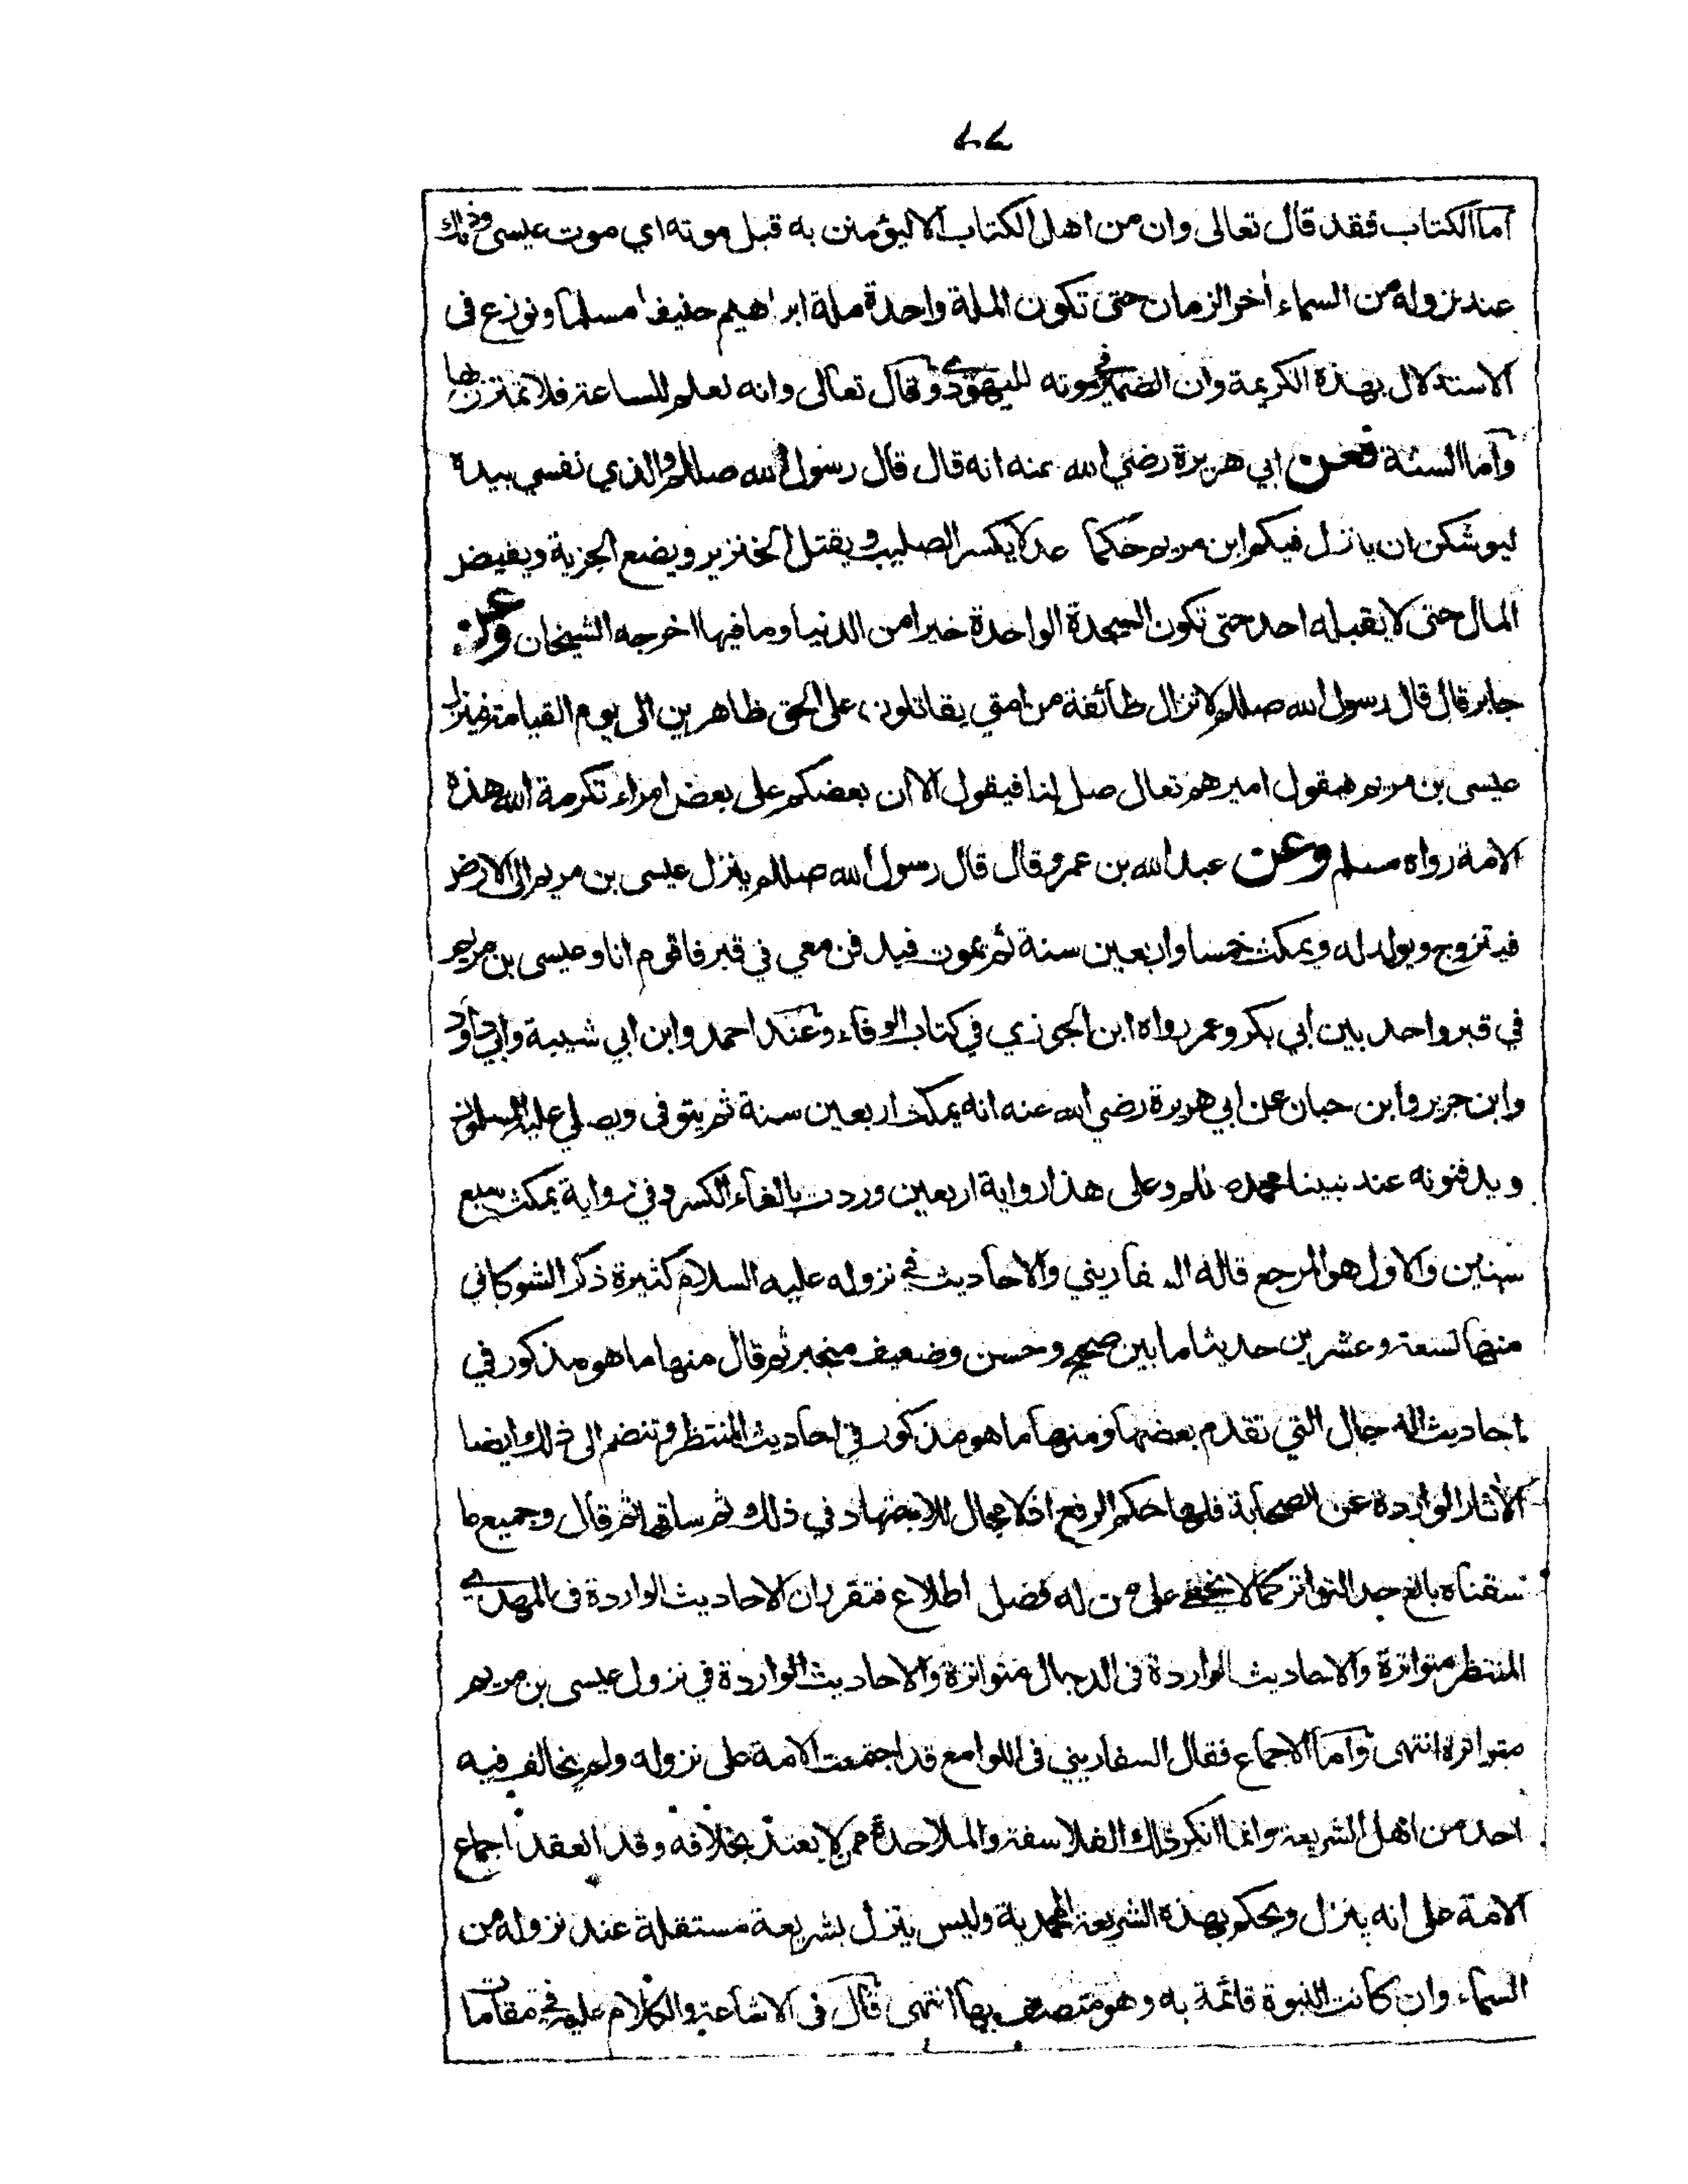 ٧٧
اما الكتاب فقد قال تعالى وان من اهل الكتاب الا ليؤمنن به قبل موته اي موت عيسى وذلك
عند نزوله من السماء اخر الزمان حتى تكون الملة واحدة ملة ابراهيم حنيفا مسلما ونوزع في
الاستدلال بهذه الكريمة وان الضمير في موته لليهودي وقال تعالى وانه لعلم للساعة فلا تمترن بها
واما السنة فعن ابي هريرة رضي الله عنه انه قال قال رسول الله صللم والذي نفسي بيده
ليوشكن ان ينزل فيكم ابن مريم حكما عدلا يكسر الصليب ويقتل الخنزير ويضع الجزية ويفيض
المال حتى لا يقبله احد حتى تكون السجدة الواحدة خيرا من الدنيا وما فيها اخرجه الشيخان وعن
جابر قال قال رسول الله صللم لا تزال طائفة من امتي يقاتلون على الحق ظاهرين الى يوم القيامة فينزل
عيسى بن مريم فيقول اميرهم تعال صل لنا فيقول لا ان بعضكم على بعض امراء تكرمة الله هذه
الامة رواه مسلم وعن عبد الله بن عمرو قال قال رسول الله صللم ينزل عيسى بن مريم الى الارض
فيتزوج ويولد له ويمكث خمسا واربعين سنة ثم يموت فيدفن معي في قبر فاقوم انا وعيسى بن مريم
في قبر واحد بين ابي بكر وعمر رواه ابن الجوزي في كتاب الوفاء وعند احمد وابن ابي شيبة وابي داود
وابن جرير وابن حبان عن ابي هريرة رضي الله عنه انه يمكث اربعين سنة ثم يتوفى ويصلي عليه المسلمون
ويدفنونه عند نبينا محمد صللم وعلى هذا رواية اربعين وردت بالغاء الكسر وفي رواية يمكث سبع
سنين والاول هو المرجع قاله السفاريني والاحاديث في نزوله عليه السلام كثيرة ذكر الشوكاني
منها تسعة وعشرين حديثا ما بين صحيح وحسن وضعيف منجبر ثم قال منها ما هو مذكور في
احاديث الدجال التي تقدم بعضها ومنها ما هو مذكور في احاديث المنتظر وتنضم الى ذلك ايضا
الآثار الواردة عن الصحابة فلها حكم الرفع اذ لا مجال للاجتهاد في ذلك ثم ساقها ثم قال وجميع ما
سقناه بالغ حد التواتر كما لا يخفى على من له فضل اطلاع فتقرر ان الاحاديث الواردة في المهدي
المنتظر متواترة والاحاديث الواردة في الدجال متواترة والاحاديث الواردة في نزول عيسى بن مريم
متواترة انتهى واما الاجماع فقال السفاريني في اللوامع قد اجتمعت الامة على نزوله ولم يخالف فيه
احد من اهل الشريعة وانما انكر ذلك الفلاسفة والملاحدة ممن لا يعتد بخلافه وقد انعقد اجماع
الامة على انه ينزل ويحكم بهذه الشريعة المحمدية وليس ينزل بشريعة مستقلة عند نزوله من
السماء وان كانت النبوة قائمة به وهو متصف بها انتهى قال في الاشاعة والكلام عليه في مقامات